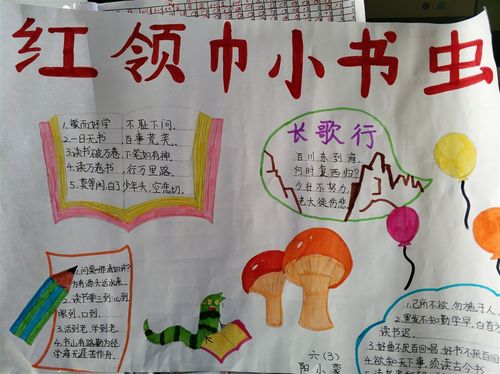 红领巾小书虫
1.敏而好学 不耻下问.
2.一日无书 百事荒芜.
3.读书破万卷,下笔如有神.
4.读万卷书, 行万里路.
5.莫等闲,白了少年头,空悲切.
长歌行
百川东到海,
何时复西归?
少壮不努力,
老大徒伤悲.
1.问渠那得清如许?
为有源头活水来.
2.读书要三到:心到
眼到,口到.
3.活到老,学到老.
4.书山有路勤为径
学海无涯苦作舟.
六(3)
阳小蕾
1.己所不欲,勿施于人.
2.黑发不知勤学早,白首方
读书迟.
3.好曲不厌百回唱,好书不厌百回
4.欲知天下事,须读古今书